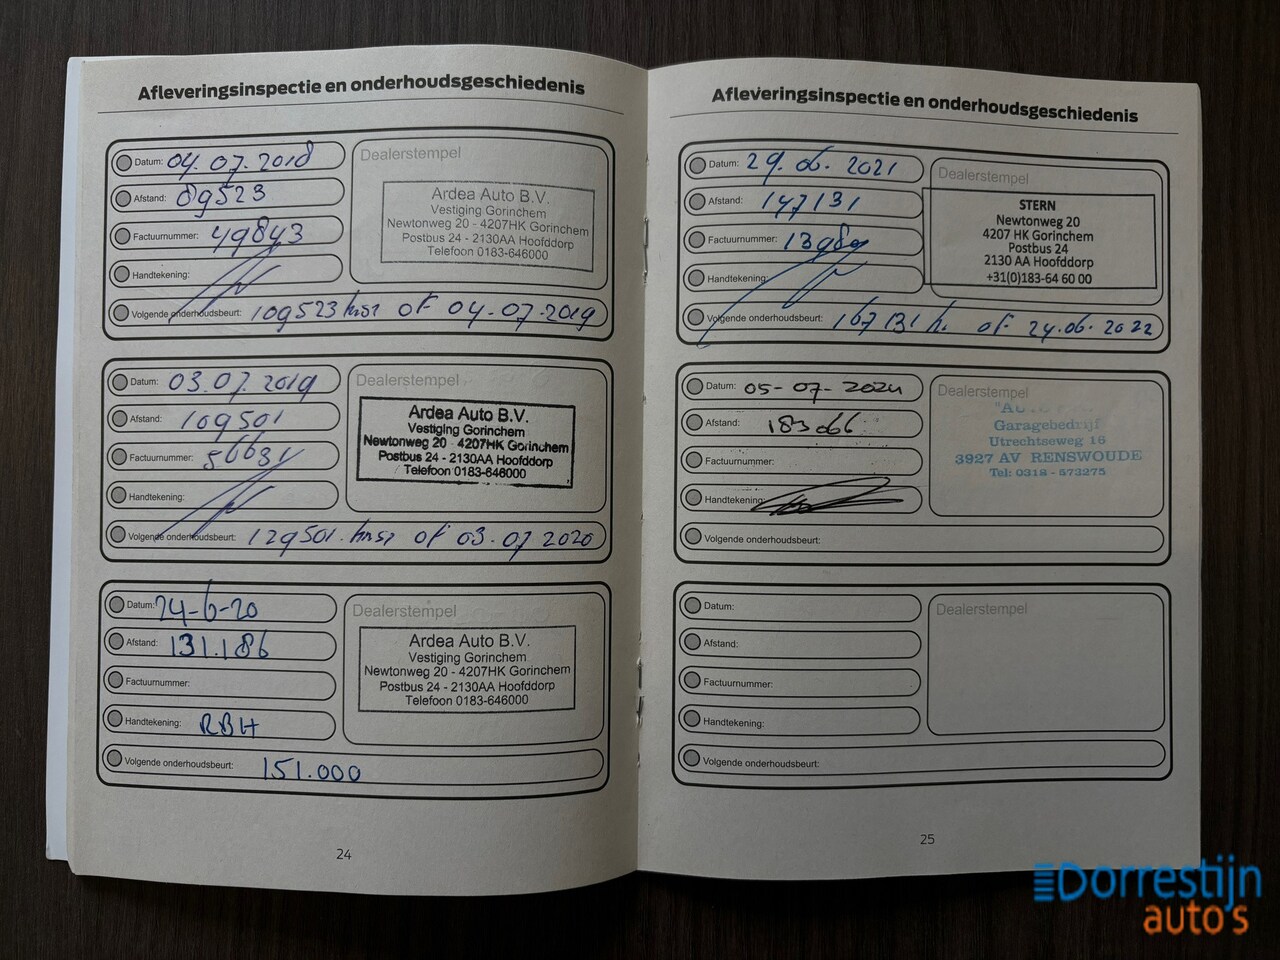 Afleveringsinspectie en onderhoudsgeschiedenis
Datum: 04.07.2018
Afstand: 89523
Factuurnummer: 49843
Handtekening:
Volgende onderhoudsbeurt: 109523 kms of 04.07.2019
Dealerstempel
Ardea Auto B.V.
Vestiging Gorinchem
Newtonweg 20 - 4207HK Gorinchem
Postbus 24 - 2130AA Hoofddorp
Telefoon 0183-646000
Datum: 03.07.2019
Afstand: 109501
Factuurnummer:
Handtekening:
Volgende onderhoudsbeurt: 129501 kms of 03.07.2020
Dealerstempel
Ardea Auto B.V.
Vestiging Gorinchem
Newtonweg 20 - 4207HK Gorinchem
Postbus 24 - 2130AA Hoofddorp
Telefoon 0183-646000
Datum: 24-6-20
Afstand: 131.186
Factuurnummer:
Handtekening: RBH
Volgende onderhoudsbeurt: 151.000
Dealerstempel
Ardea Auto B.V.
Vestiging Gorinchem
Newtonweg 20 - 4207HK Gorinchem
Postbus 24 - 2130AA Hoofddorp
Telefoon 0183-646000
24
Afleveringsinspectie en onderhoudsgeschiedenis
Datum: 29.06.2021
Afstand: 147131
Factuurnummer:
Handtekening:
Volgende onderhoudsbeurt: 167131 k. of 24.06.2022
Dealerstempel
STERN
Newtonweg 20
4207 HK Gorinchem
Postbus 24
2130 AA Hoofddorp
+31(0)183-64 60 00
Datum: 05-07-2024
Afstand: 183066
Factuurnummer:
Handtekening:
Volgende onderhoudsbeurt:
Dealerstempel
Garagebedrijf
Utrechtseweg 16
3927 AV RENSWOUDE
Tel: 0318 - 573275
Datum:
Afstand:
Factuurnummer:
Handtekening:
Volgende onderhoudsbeurt:
Dealerstempel
25
Dorrestijn
auto's